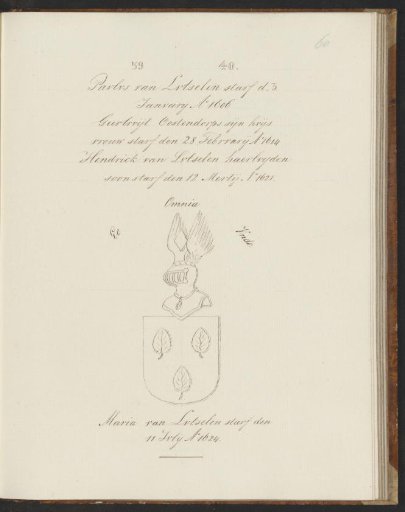 60
59 49.
Pavlvs van Lvtselen starf d. 3
Janvary A° 1606
Geertrvÿt Oostendorps syn hvijs
vrouw starf den 28 Febrvary A° 1614
Hendrick van Lvtselen haerlvyden
soon starf den 12 Mertij A° 1621
Omnia
Vnde
Maria van Lvtselen starf den
11 Jvly A° 1624